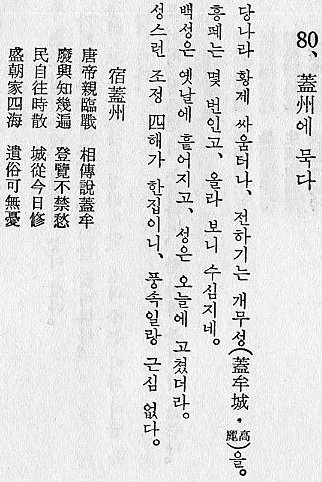 80、蓋州에 묵다
당나라 황제 싸움터나、 전하기는 개무성(蓋牟城·高麗)을。
흥폐는 몇 번인고、올라 보니 수심지네。
백성은 옛날에 흩어지고、성은 오늘에 고쳤더라。
성스런 조정 四海가 한집이니、풍속일랑 근심 없다。
宿蓋州
唐帝親臨戰 相傳說蓋牟
廢興知幾遍 登覽不禁愁
民自往時散 城從今日修
盛朝家四海 遺俗可無憂